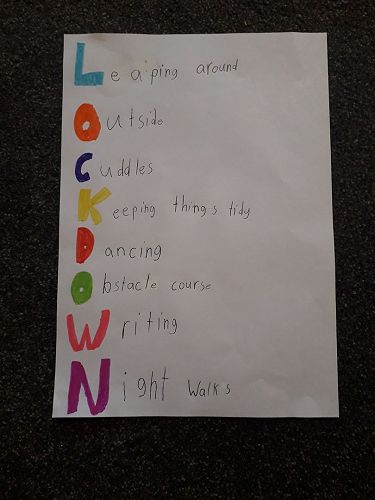 Leaping around
Outside
Cuddles
Keeping things tidy
Dancing
Obstacle course
Writing
Night walks